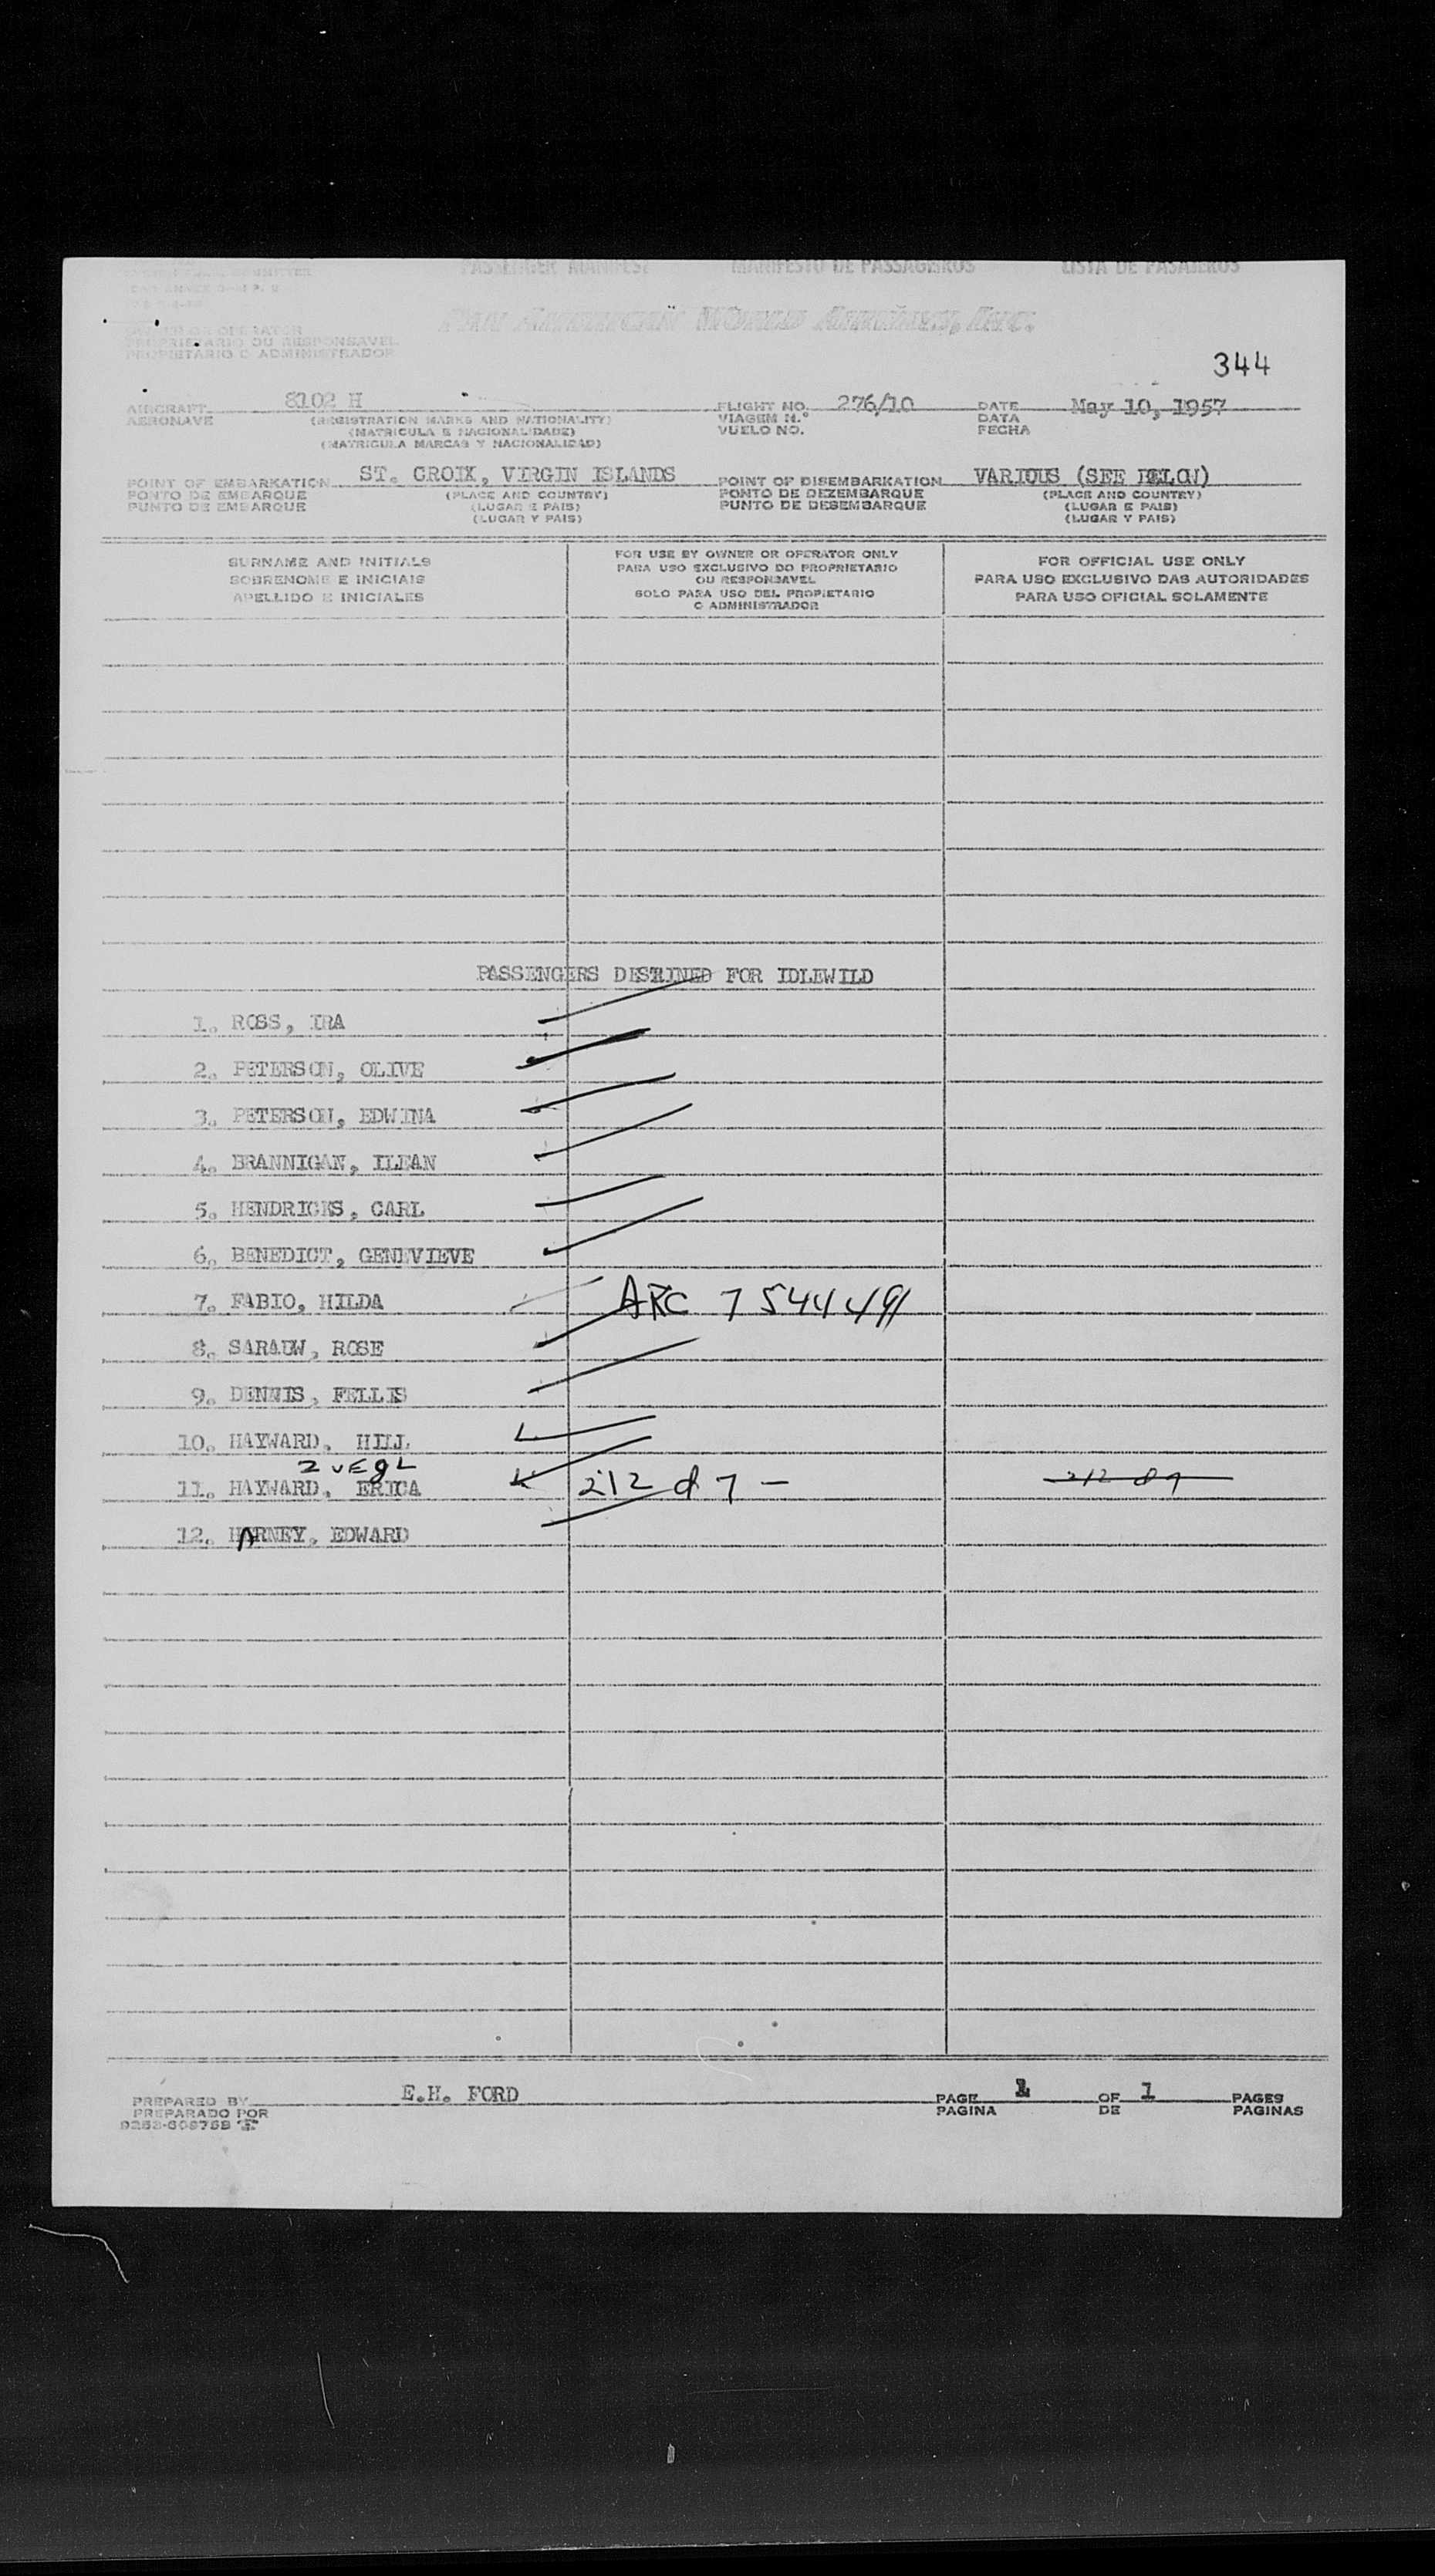 PASSENGER MANIFEST MANIFESTO DE PASSAGEIROS LISTA DE PASAJEROS
PAN AMERICAN WORLD AIRWAYS, INC.
OWNER OR OPERATOR
PROPRIETARIO OU RESPONSAVEL
PROPIETARIO O ADMINISTRADOR
344
AIRCRAFT 8102 H FLIGHT NO. 276/10 DATE May 10, 1957
AERONAVE (REGISTRATION MARKS AND NATIONALITY) VIAGEM N.º DATA
(MATRICULA E NACIONALIDADE) VUELO NO. FECHA
(MATRICULA MARCAS Y NACIONALIDAD)
POINT OF EMBARKATION ST. CROIX, VIRGIN ISLANDS POINT OF DISEMBARKATION VARIOUS (SEE BELOW)
PONTO DE EMBARQUE (PLACE AND COUNTRY) PONTO DE DEZEMBARQUE (PLACE AND COUNTRY)
PUNTO DE EMBARQUE (LUGAR E PAIS) PUNTO DE DESEMBARQUE (LUGAR E PAIS)
(LUGAR Y PAIS) (LUGAR Y PAIS)
SURNAME AND INITIALS
SOBRENOME E INICIAIS
APELLIDO E INICIALES
FOR USE BY OWNER OR OPERATOR ONLY
PARA USO EXCLUSIVO DO PROPRIETARIO
OU RESPONSAVEL
SOLO PARA USO DEL PROPIETARIO
O ADMINISTRADOR
FOR OFFICIAL USE ONLY
PARA USO EXCLUSIVO DAS AUTORIDADES
PARA USO OFICIAL SOLAMENTE
PASSENGERS DESTINED FOR IDLEWILD
1. ROSS, IRA
2. PETERSON, OLIVE
3. PETERSON, EDWINA
4. BRANNIGAN, ILEAN
5. HENDRICKS, CARL
6. BENEDICT, GENEVIEVE
7. FABIO, HILDA ARC 7 544 491
8. SARAUW, ROSE
9. DENNIS, FELLIS
10. HAYWARD, HILL
11. HAYWARD, ERICA 212 d 7 —
12. HARNEY, EDWARD
PREPARED BY E.H. FORD PAGE 1 OF 1 PAGES
PREPARADO POR PAGINA DE PAGINAS